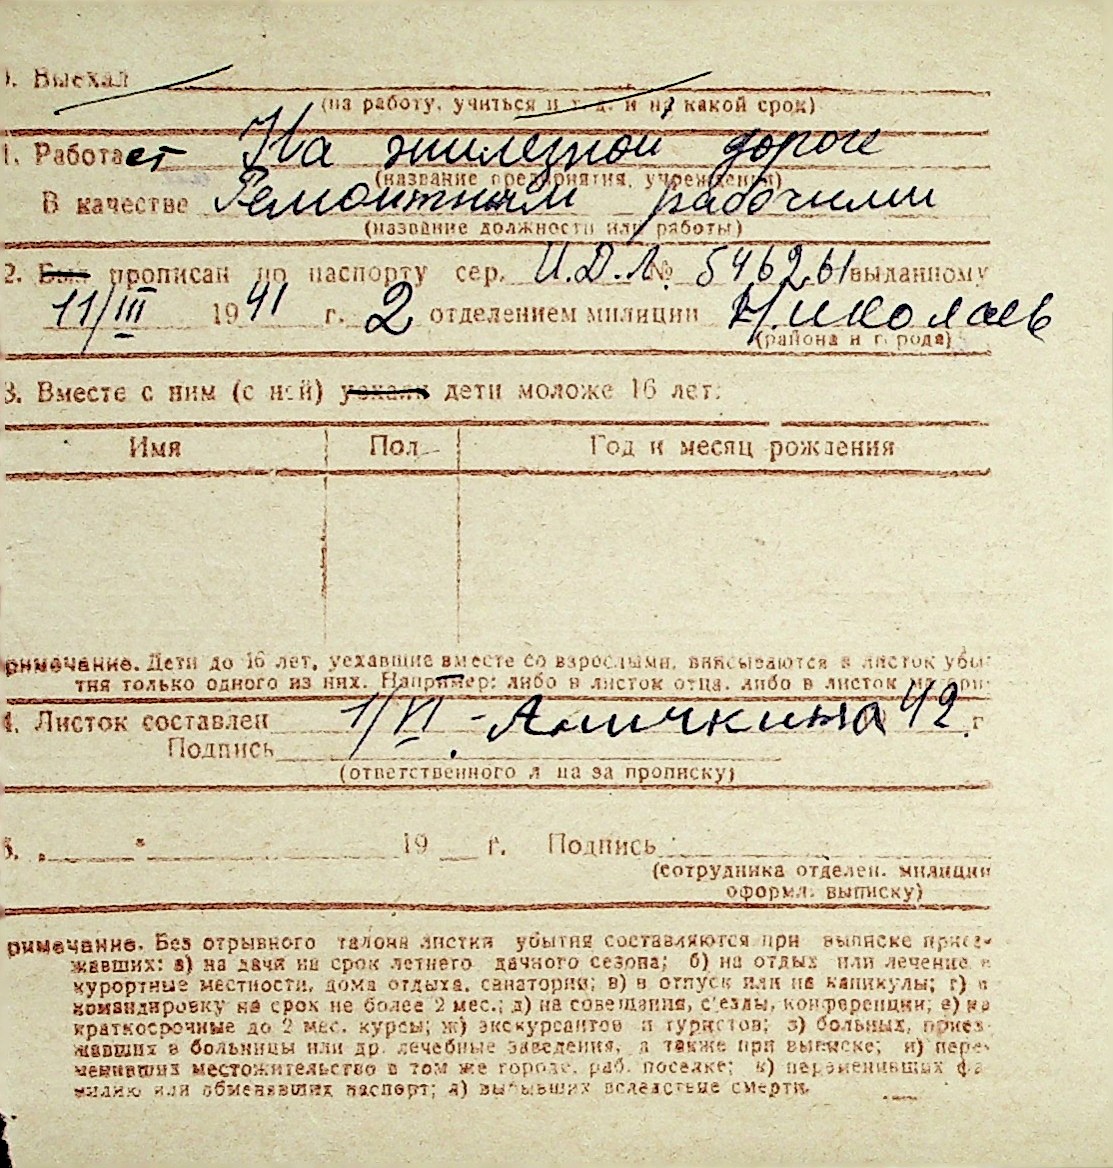 0. Выехал
(на работу, учиться и т. д. и на какой срок)
1. Работает На жилезной дороге
(название предприятия, учреждения)
В качестве Ремонтным рабочими
(название должности или работы)
2. Был прописан по паспорту сер. И.Д.Л. № 546261 выданному
11/III 1941 г. 2 отделением милиции Н.иколаев
(района и города)
3. Вместе с ним (с ней) уехали дети моложе 16 лет:
Имя Пол Год и месяц рождения
римечание. Дети до 16 лет, уехавшие вместе со взрослыми, вписываются в листок убы-
тия только одного из них. Например: либо в листок отца, либо в листок матери-
4. Листок составлен 1/VI - Аничкина 42 г
Подпись
(ответственного лица за прописку)
5. „ " 19 г. Подпись
(сотрудника отделен. милиции
оформл. выписку)
римечание. Без отрывного талона листки убытия составляются при выписке приез-
жавших: а) на дачи на срок летнего дачного сезона; б) на отдых или лечение в
курортные местности, дома отдыха, санатории; в) в отпуск или на каникулы; г) в
командировку на срок не более 2 мес.; д) на совещания, с'езды, конференции; е) на
краткосрочные до 2 мес. курсы; ж) экскурсантов и туристов; з) больных, приез-
жавших в больницы или др. лечебные заведения, а также при выписке; и) пере-
менивших местожительство в том же городе, раб. поселке; к) переменивших фа-
милию или обменявших паспорт; л) выбывших вследствие смерти.